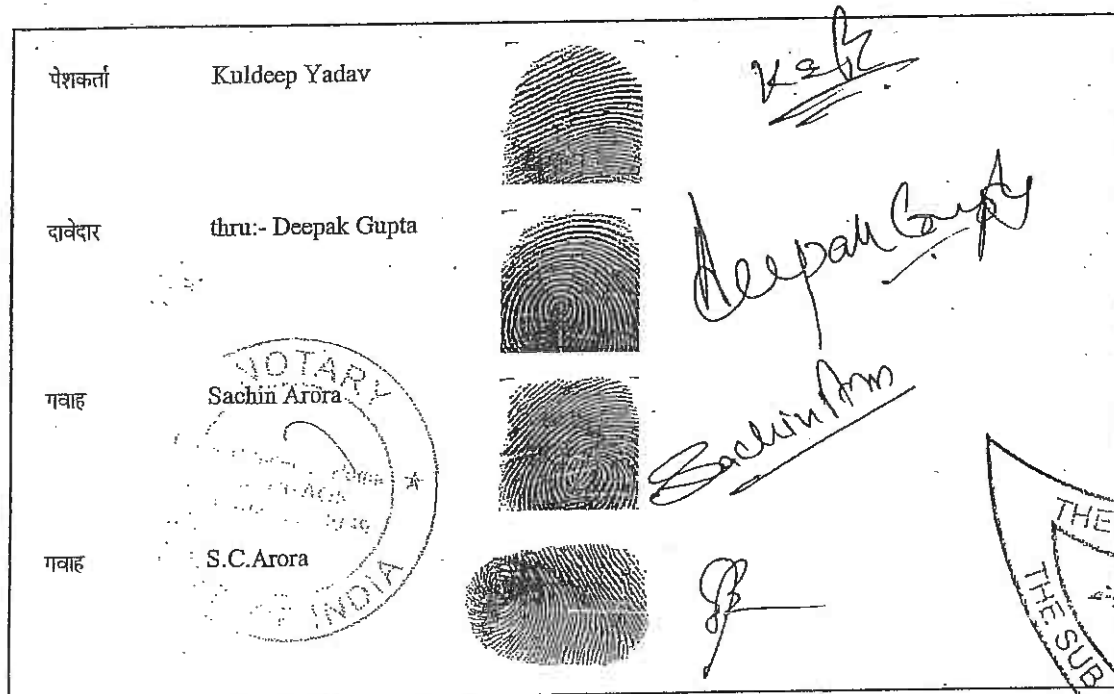 पेशकर्ता Kuldeep Yadav
दावेदार thru:- Deepak Gupta
Deepak Gupta
NOTARY
गवाह Sachin Arora
Sachin Arora
गवाह S.C.Arora
INDIA
THE
THE SUB